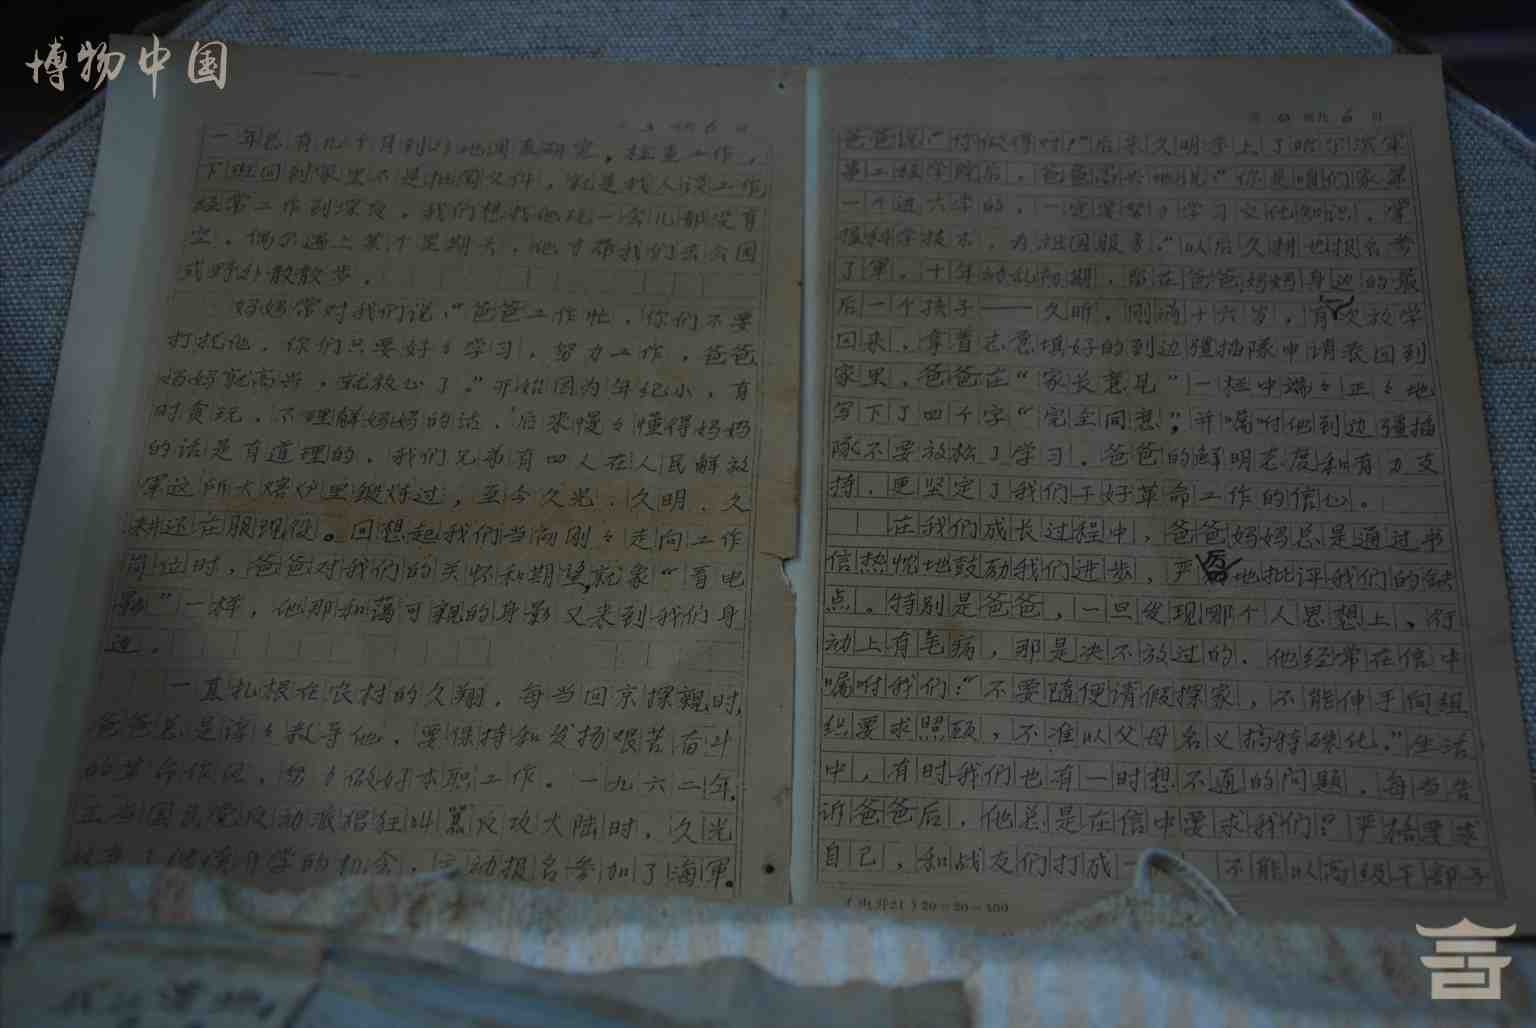 博物中国
一年总有几个月到外地调查研究，检查工作，
下班回到家里不是批阅文件，就是找人谈工作
经常工作到深夜，我们想找他玩一会儿都没有
空，偶尔遇上某个星期天，他才带我们去公园
或野外散散步。
妈妈常对我们说，“爸爸工作忙，你们不要
打扰他，你们只要好々学习，努力工作，爸爸
妈妈就高兴，就放心了。”开始因为年纪小，有
时贪玩，不理解妈妈的话，后来慢々懂得妈妈
的话是有道理的，我们兄弟有四人在人民解放
军这所大熔炉里锻炼过，至今久光、久明、久
耕还在服现役。回想起我们当向刚々走向工作
岗位时，爸爸对我们的关怀和期望，就象“看电
影”一样，他那和蔼可亲的身影又来到我们身
边。
一直扎根在农村的久翔，每当回京探亲时，
爸爸总是谆々教导他，要保持和发扬艰苦奋斗
的革命作风，努力做好本职工作。一九六二年，
正当国民党反动派猖狂叫嚣反攻大陆时，久光
放弃了继续升学的机会，主动报名参加了海军。
6
爸爸说：“你做得对！”后来久明考上了哈尔滨军
事工程学院后，爸爸高兴地说“你是咱们家第
一个进大学的，一定要努力学习文化知识，掌
握科学技术，为祖国服务。”以后久耕也报名参
了军。十年动乱初期，留在爸爸妈妈身边的最
后一个孩子——久昕，刚满十六岁，有次放学
回来，拿着志愿填好的到边疆插队申请表回到
家里，爸爸在“家长意见”一栏中端々正々地
写下了四个字“完全同意”；并嘱咐他到边疆插
队不要放松了学习。爸爸的鲜明态度和有力支
持，更坚定了我们干好革命工作的信心。
在我们成长过程中，爸爸妈妈总是通过书
信热忱地鼓励我们进步，严厉地批评我们的缺
点。特别是爸爸，一旦发现哪个人思想上、行
动上有毛病，那是决不放过的。他经常在信中
嘱咐我们：“不要随便请假探家，不能伸手向组
织要求照顾，不准以父母名义搞特殊化。”生活
中，有时我们也有一时想不通的问题，每当告
诉爸爸后，他总是在信中要求我们：严格要求
自己，和战友们打成一 不能以高级干部子
20×20=400